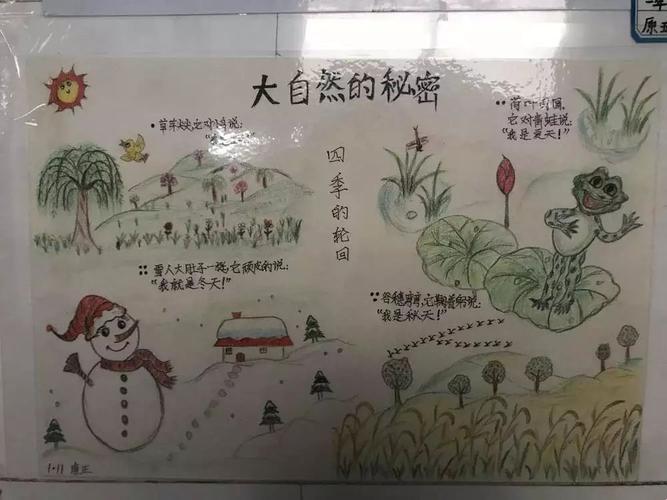 大自然的秘密
四季的轮回
草芽尖尖,它对小鸟说:
荷叶圆圆,
它对青蛙说:
“我是夏天!”
雪人大肚子一挺,它顽皮的说:
“我就是冬天!”
谷穗弯弯,它鞠着躬说:
“我是秋天!”
1·11